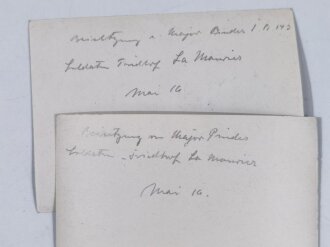 Beisetzung v. Major Binder I R 143
Soldaten Friedhof La Manvier
Mai 16
Beisetzung von Major Pindes
Soldaten-Friedhof La Manvier
Mai 16.